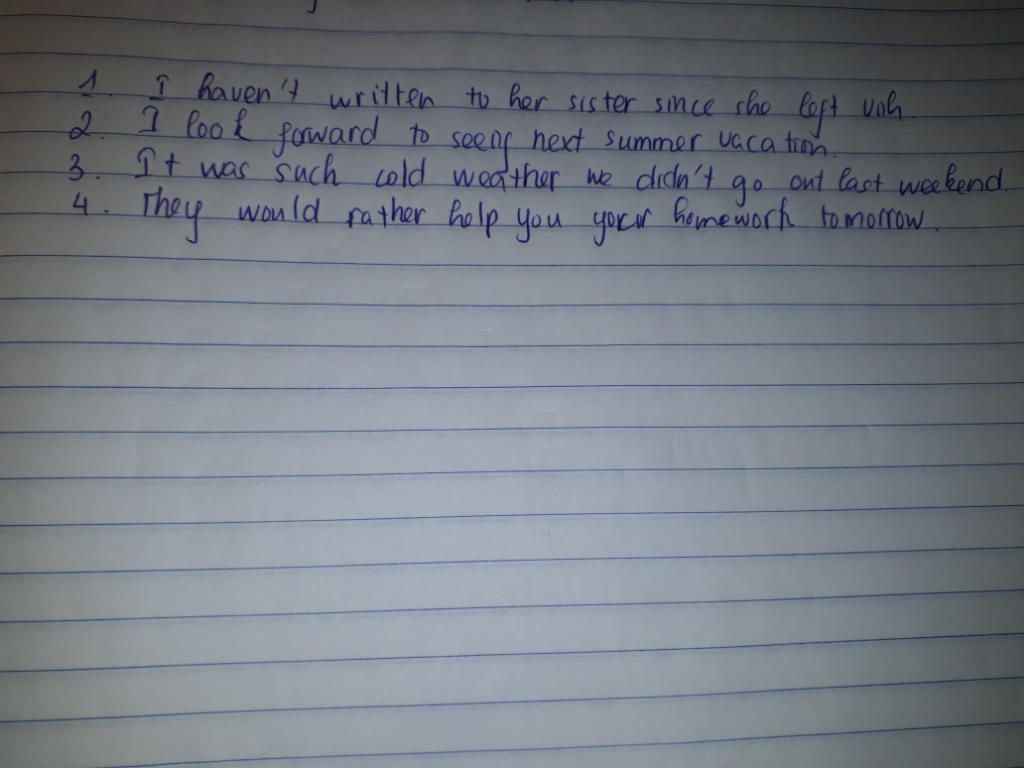 1. I haven't written to her sister since she left
2. I look forward to seeng next summer vacation.
3. It was such cold weather we didn't go out last weekend.
4. They would rather help you your homework tomorrow.